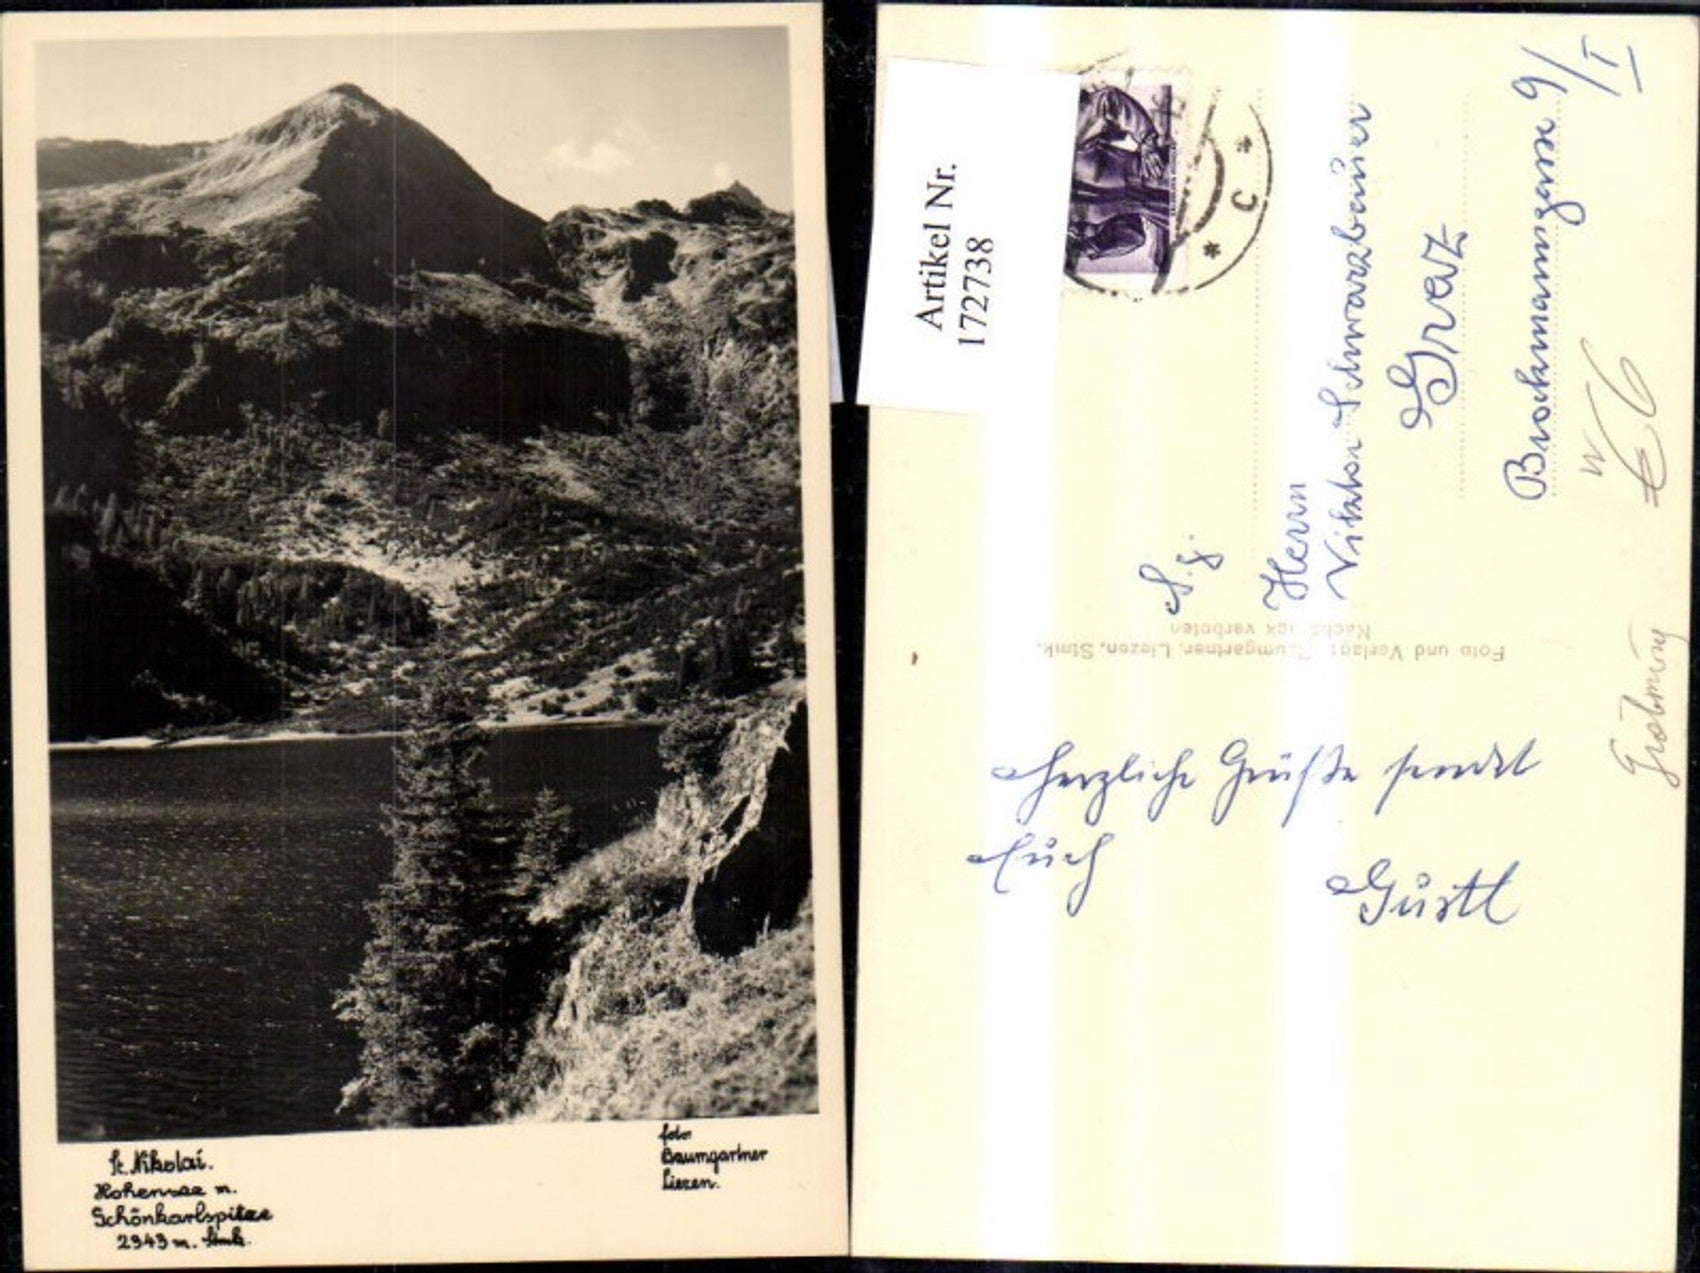 St. Nikolai.
Hohensee m.
Schönkarlspitze
2343 m. Stmk.
foto
Baumgartner
Liezen.
Artikel Nr.
172738
C
S.g.
Herrn
Viktor Schwarzbauer
Graz
Brockmanngasse 9/I
€6
Foto und Verlag: Baumgartner, Liezen, Stmk.
Nachdruck verboten
Herzliche Grüße sendet
Euch
Gustl
Gröbming